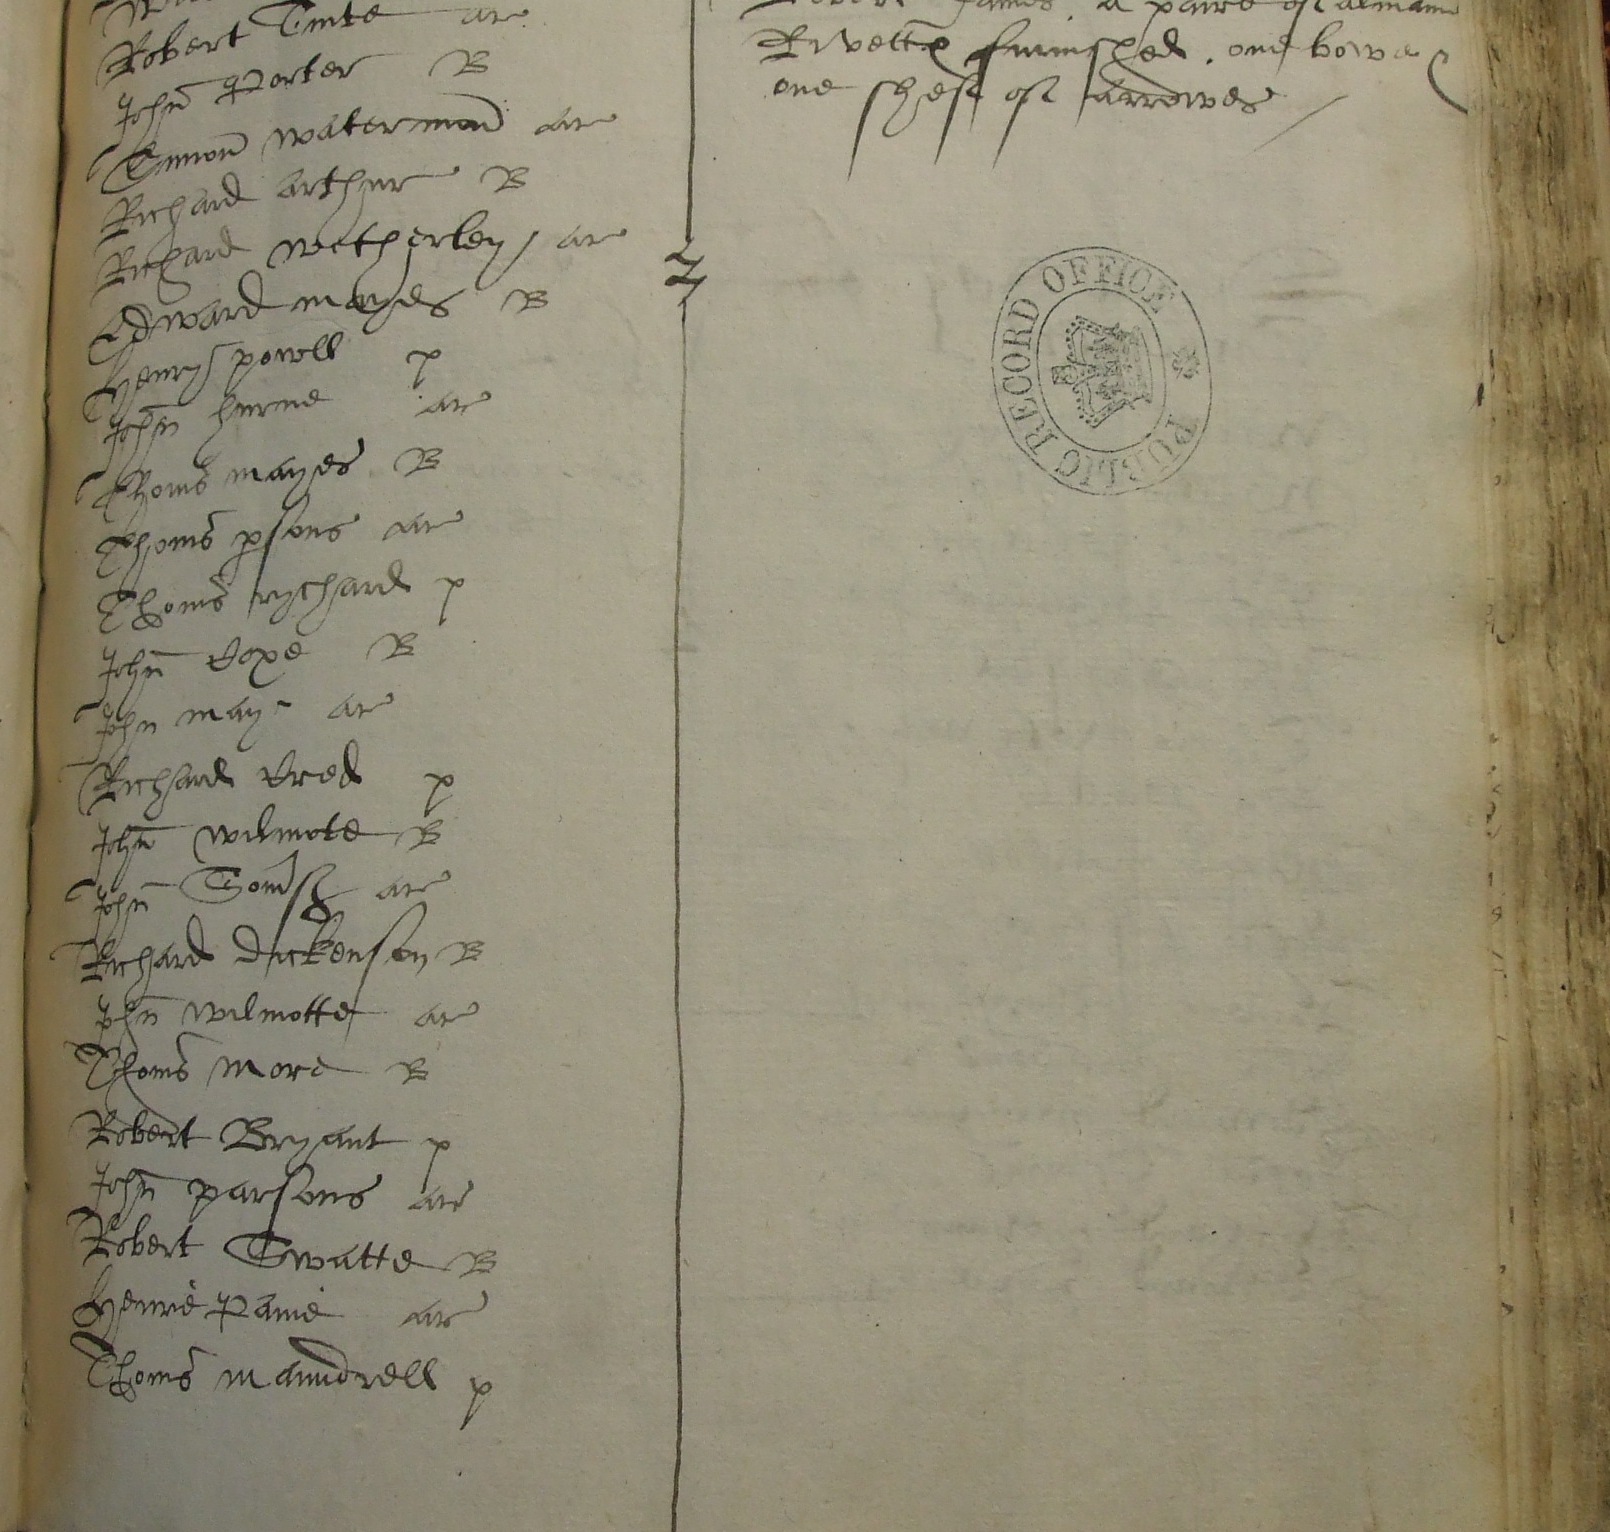 Robert Tinte ar
John Porter B
Simon Waterman ar
Richard Arthur B
Richard Wetherley / ar
Edward Mayes B
Henry Powell p
John Hurne ar
Thoms Mayes B
Thoms psons ar
Thoms Rychard p
John Cope B
John May ar
Richard Cred p
John Wilmote B
John ar
Richard Dickenson B
John Wilmotte ar
Thoms More B
Robert Bryant p
John Parsons ar
Robert Swatte B
Henrie Paine ar
Thoms Maundrell p
Robert James . a paire of almaine
Rivette furnished . one bowe
one shefe of arrowes /
PUBLIC RECORD OFFICE